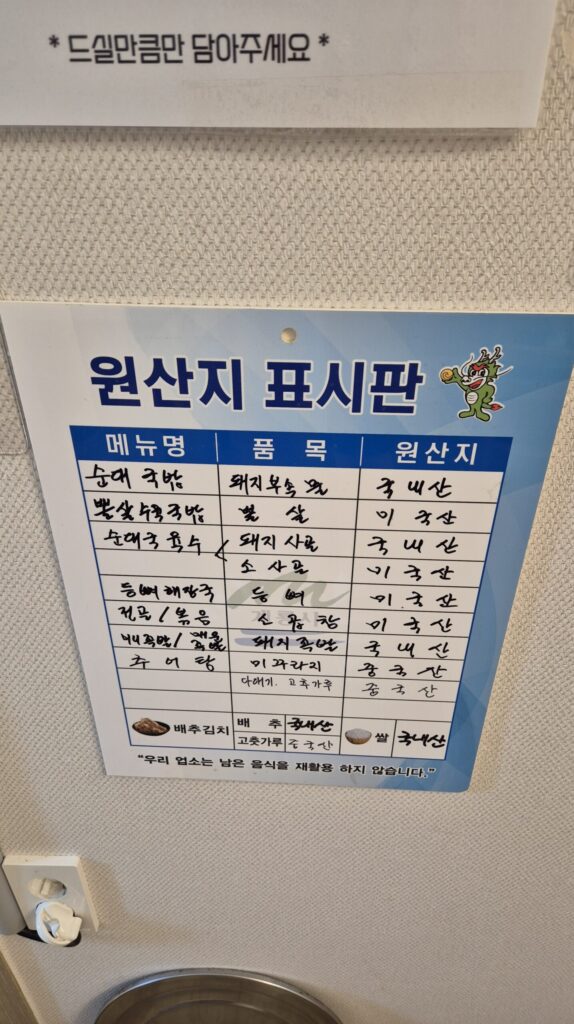 * 드실만큼만 담아주세요 *
원산지 표시판
메뉴명 품목 원산지
순대국밥 돼지부속물 국내산
뽈살수육국밥 뽈살 미국산
순대국육수 < 돼지사골 국내산
소사골 미국산
등뼈해장국 등뼈 미국산
전골/볶음 소곱창 미국산
족발/매운족발 돼지족발 국내산
추어탕 미꾸라지 중국산
다대기. 고추가루 중국산
배추김치 배추 국내산 쌀 국내산
고춧가루 중국산
"우리 업소는 남은 음식을 재활용 하지 않습니다."